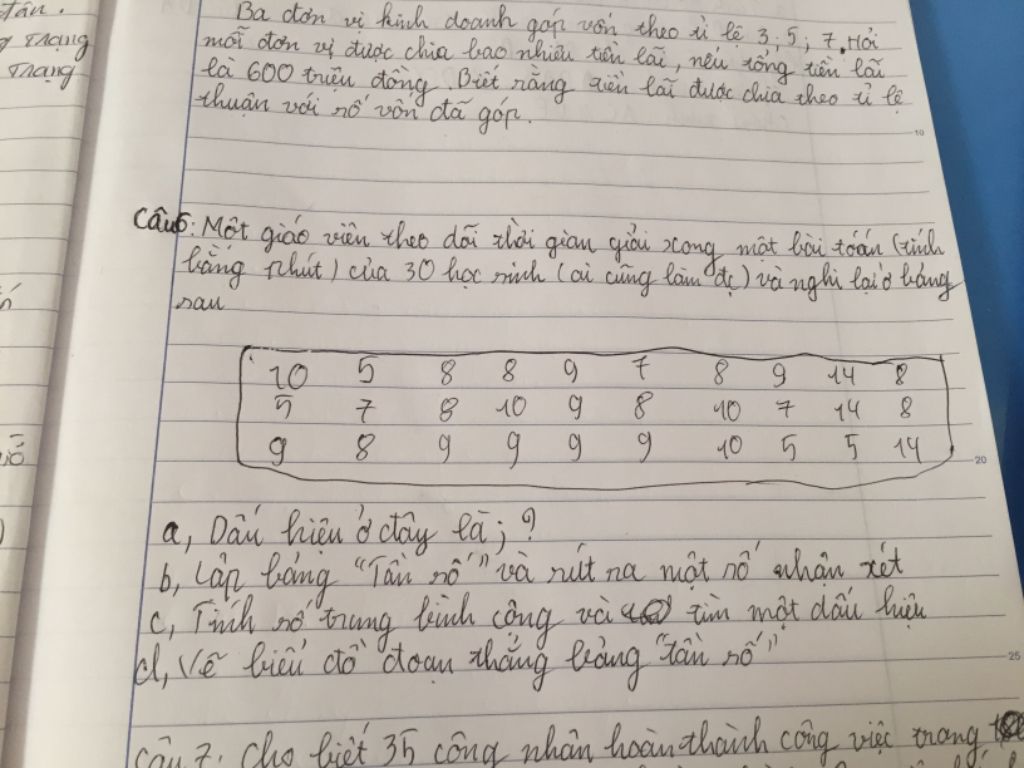 tán.
Trạng
Trạng
Ba đơn vị kinh doanh góp vốn theo tỉ lệ 3; 5; 7. Hỏi
mỗi đơn vị được chia bao nhiêu tiền lãi, nếu tổng tiền lãi
là 600 triệu đồng. Biết rằng tiền lãi được chia theo tỉ lệ
thuận với số vốn đã góp.
10
Câu 6: Một giáo viên theo dõi thời gian giải xong một bài toán (tính
bằng phút) của 30 học sinh (ai cũng làm đc) và nghi lại ở bảng
sau
10 5 8 8 9 7 8 9 14 8
5 7 8 10 9 8 10 7 14 8
9 8 9 9 9 9 10 5 5 14
20
a, Dấu hiệu ở đây là; ?
b, Lập bảng "Tần số" và rút ra một số nhận xét
c, Tính số trung bình cộng và tìm một dấu hiệu
d, Vẽ biểu đồ đoạn thẳng bảng "tần số"
25
Câu 7: Cho biết 35 công nhân hoàn thành công việc trong